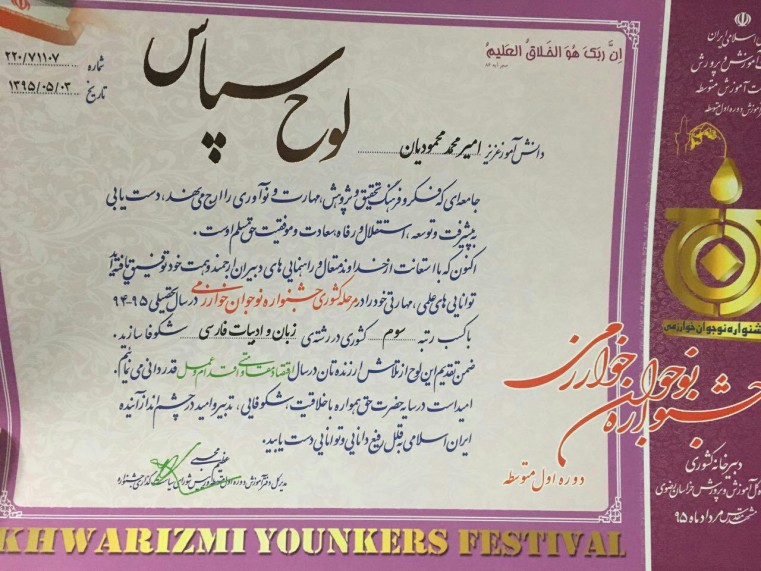 إِنَّ رَبَّکَ هُوَ الخَلاقُ العَلیمُ
شماره ۲۲۰/۷۱۱۰۷
تاریخ ۱۳۹۵/۰۵/۰۳
لوح سپاس
دانش آموز عزیز امیرمحمد محمودیان
جامعه‌ای که فکر و فرهنگ تحقیق و پژوهش، مهارت و نوآوری را ارج می‌نهد، دست‌یابی
به پیشرفت و توسعه، استقلال و رفاه، سعادت و موفقیت حق مسلم اوست.
اکنون که با استعانت از خداوند متعال و راهنمایی‌های دبیران ارجمند و همت خود توفیق یافته‌اید
توانایی‌های علمی، مهارتی خود را در مرحله کشوری جشنواره نوجوان خوارزمی در سال تحصیلی ۹۵-۹۴
با کسب رتبه سوم کشوری در رشته‌ی زبان و ادبیات فارسی شکوفا سازید.
ضمن تقدیم این لوح از تلاش ارزنده‌تان در سال اقتصاد مقاومتی، اقدام و عمل قدردانی می‌نمایم.
امید است در سایه حضرت حق همواره با خلاقیت، شکوفایی، تدبیر و امید در چشم‌انداز آینده
ایران اسلامی به قلل رفیع دانایی و توانایی دست یابید.
عظیم محبی
مدیرکل دفتر آموزش دوره اول متوسطه و رئیس شورای سیاست‌گذاری جشنواره
جشنواره نوجوان خوارزمی
دوره اول متوسطه
اسلامی ایران
آموزش و پرورش
آموزش متوسطه
آموزش دوره اول متوسطه
جشنواره نوجوان خوارزمی
دبیرخانه کشوری
اداره کل آموزش و پرورش خراسان رضوی
مشهد مقدس مرداد ماه ۹۵
KHWARIZMI YOUNKERS FESTIVAL